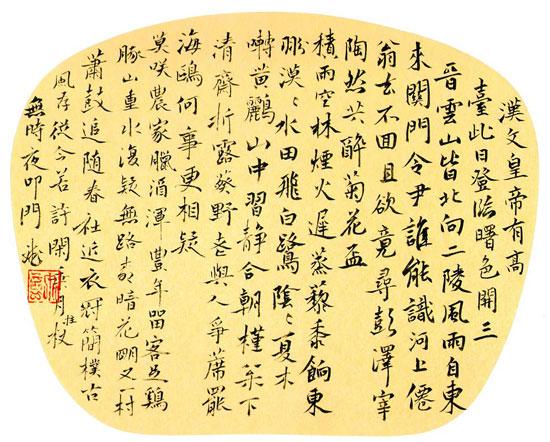 漢文皇帝有高
臺此日登臨曙色開三
晉雲山皆北向二陵風雨自東
來關門令尹誰能識河上僊
翁去不回且欲竟尋彭澤宰
陶然共醉菊花盃
積雨空林煙火遲蒸藜黍餉東
菑漠〻水田飛白鷺陰〻夏木
囀黃鸝山中習靜合朝槿枩下
清齋折露葵野老與人爭蓆罷
海鷗何事更相疑
莫咲農家臘酒渾豐年留客足鷄
豚山重水複疑無路柳暗花明又一村
蕭鼓追隨春社近衣冠簡樸古
風存從今若許閑乘月拄杖
無時夜叩門